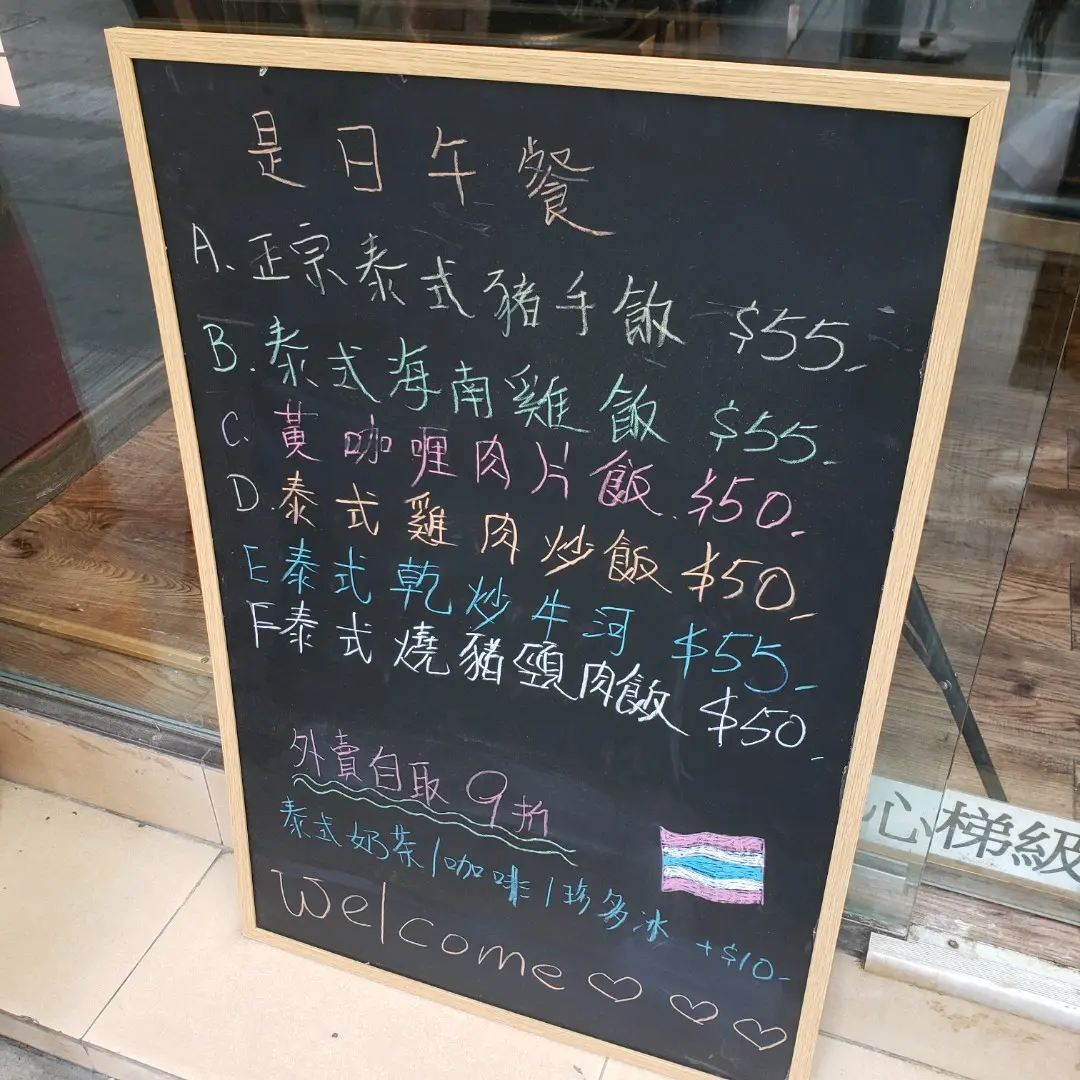 是日午餐
A. 正宗泰式豬手飯 $55-
B. 泰式海南雞飯 $55-
C. 黃咖喱肉片飯 $50-
D. 泰式雞肉炒飯 $50-
E 泰式乾炒牛河 $55-
F 泰式燒豬頸肉飯 $50-
外賣自取 9折
泰式奶茶/咖啡/珍多冰 +$10-
Welcome ♡ ♡ ♡
心梯級